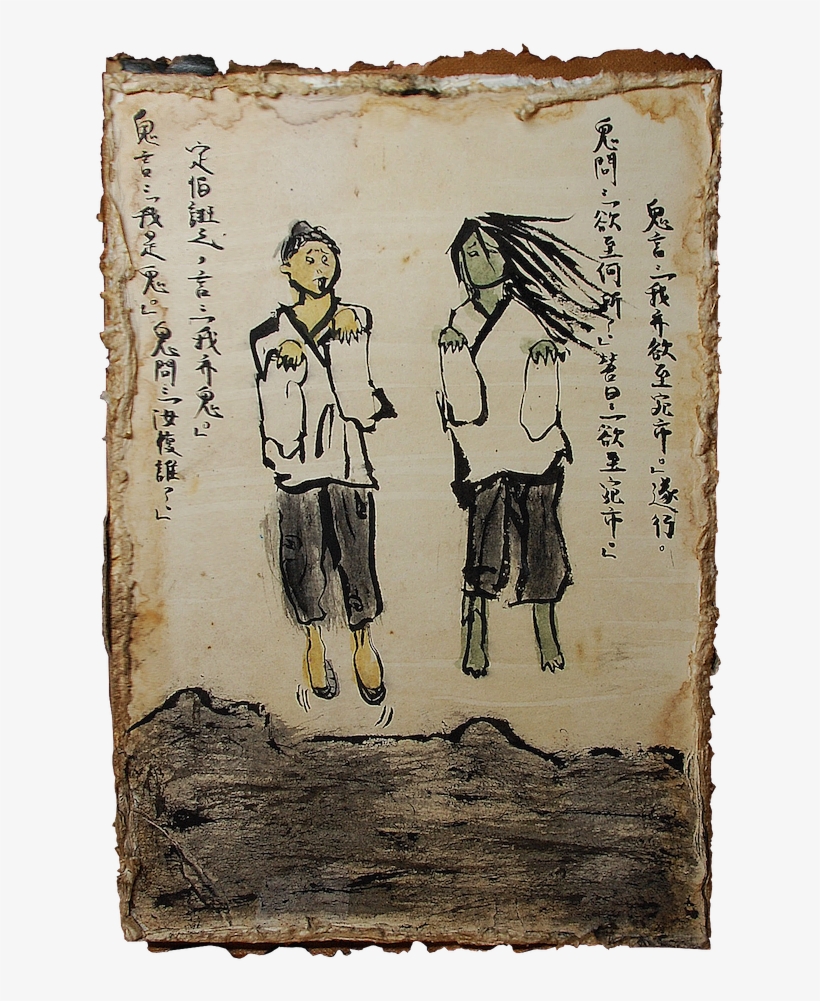 鬼言:「我是鬼。」鬼問:「汝復誰?」
定伯誑之,言:「我亦鬼。」
鬼問:「欲至何所?」答曰:「欲至宛市。」
鬼言:「我亦欲至宛市。」遂行。